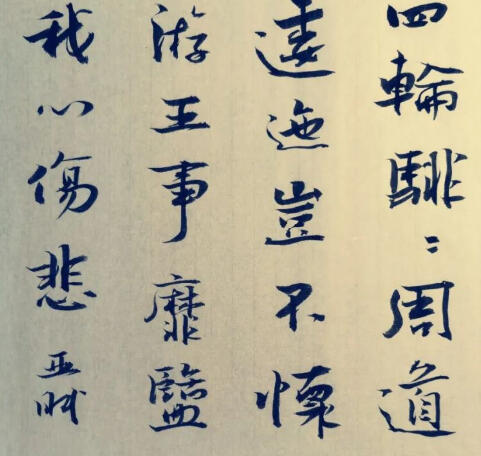 四輪騑〻周道
逶迤豈不懷
游王事靡盬
我心傷悲 亞